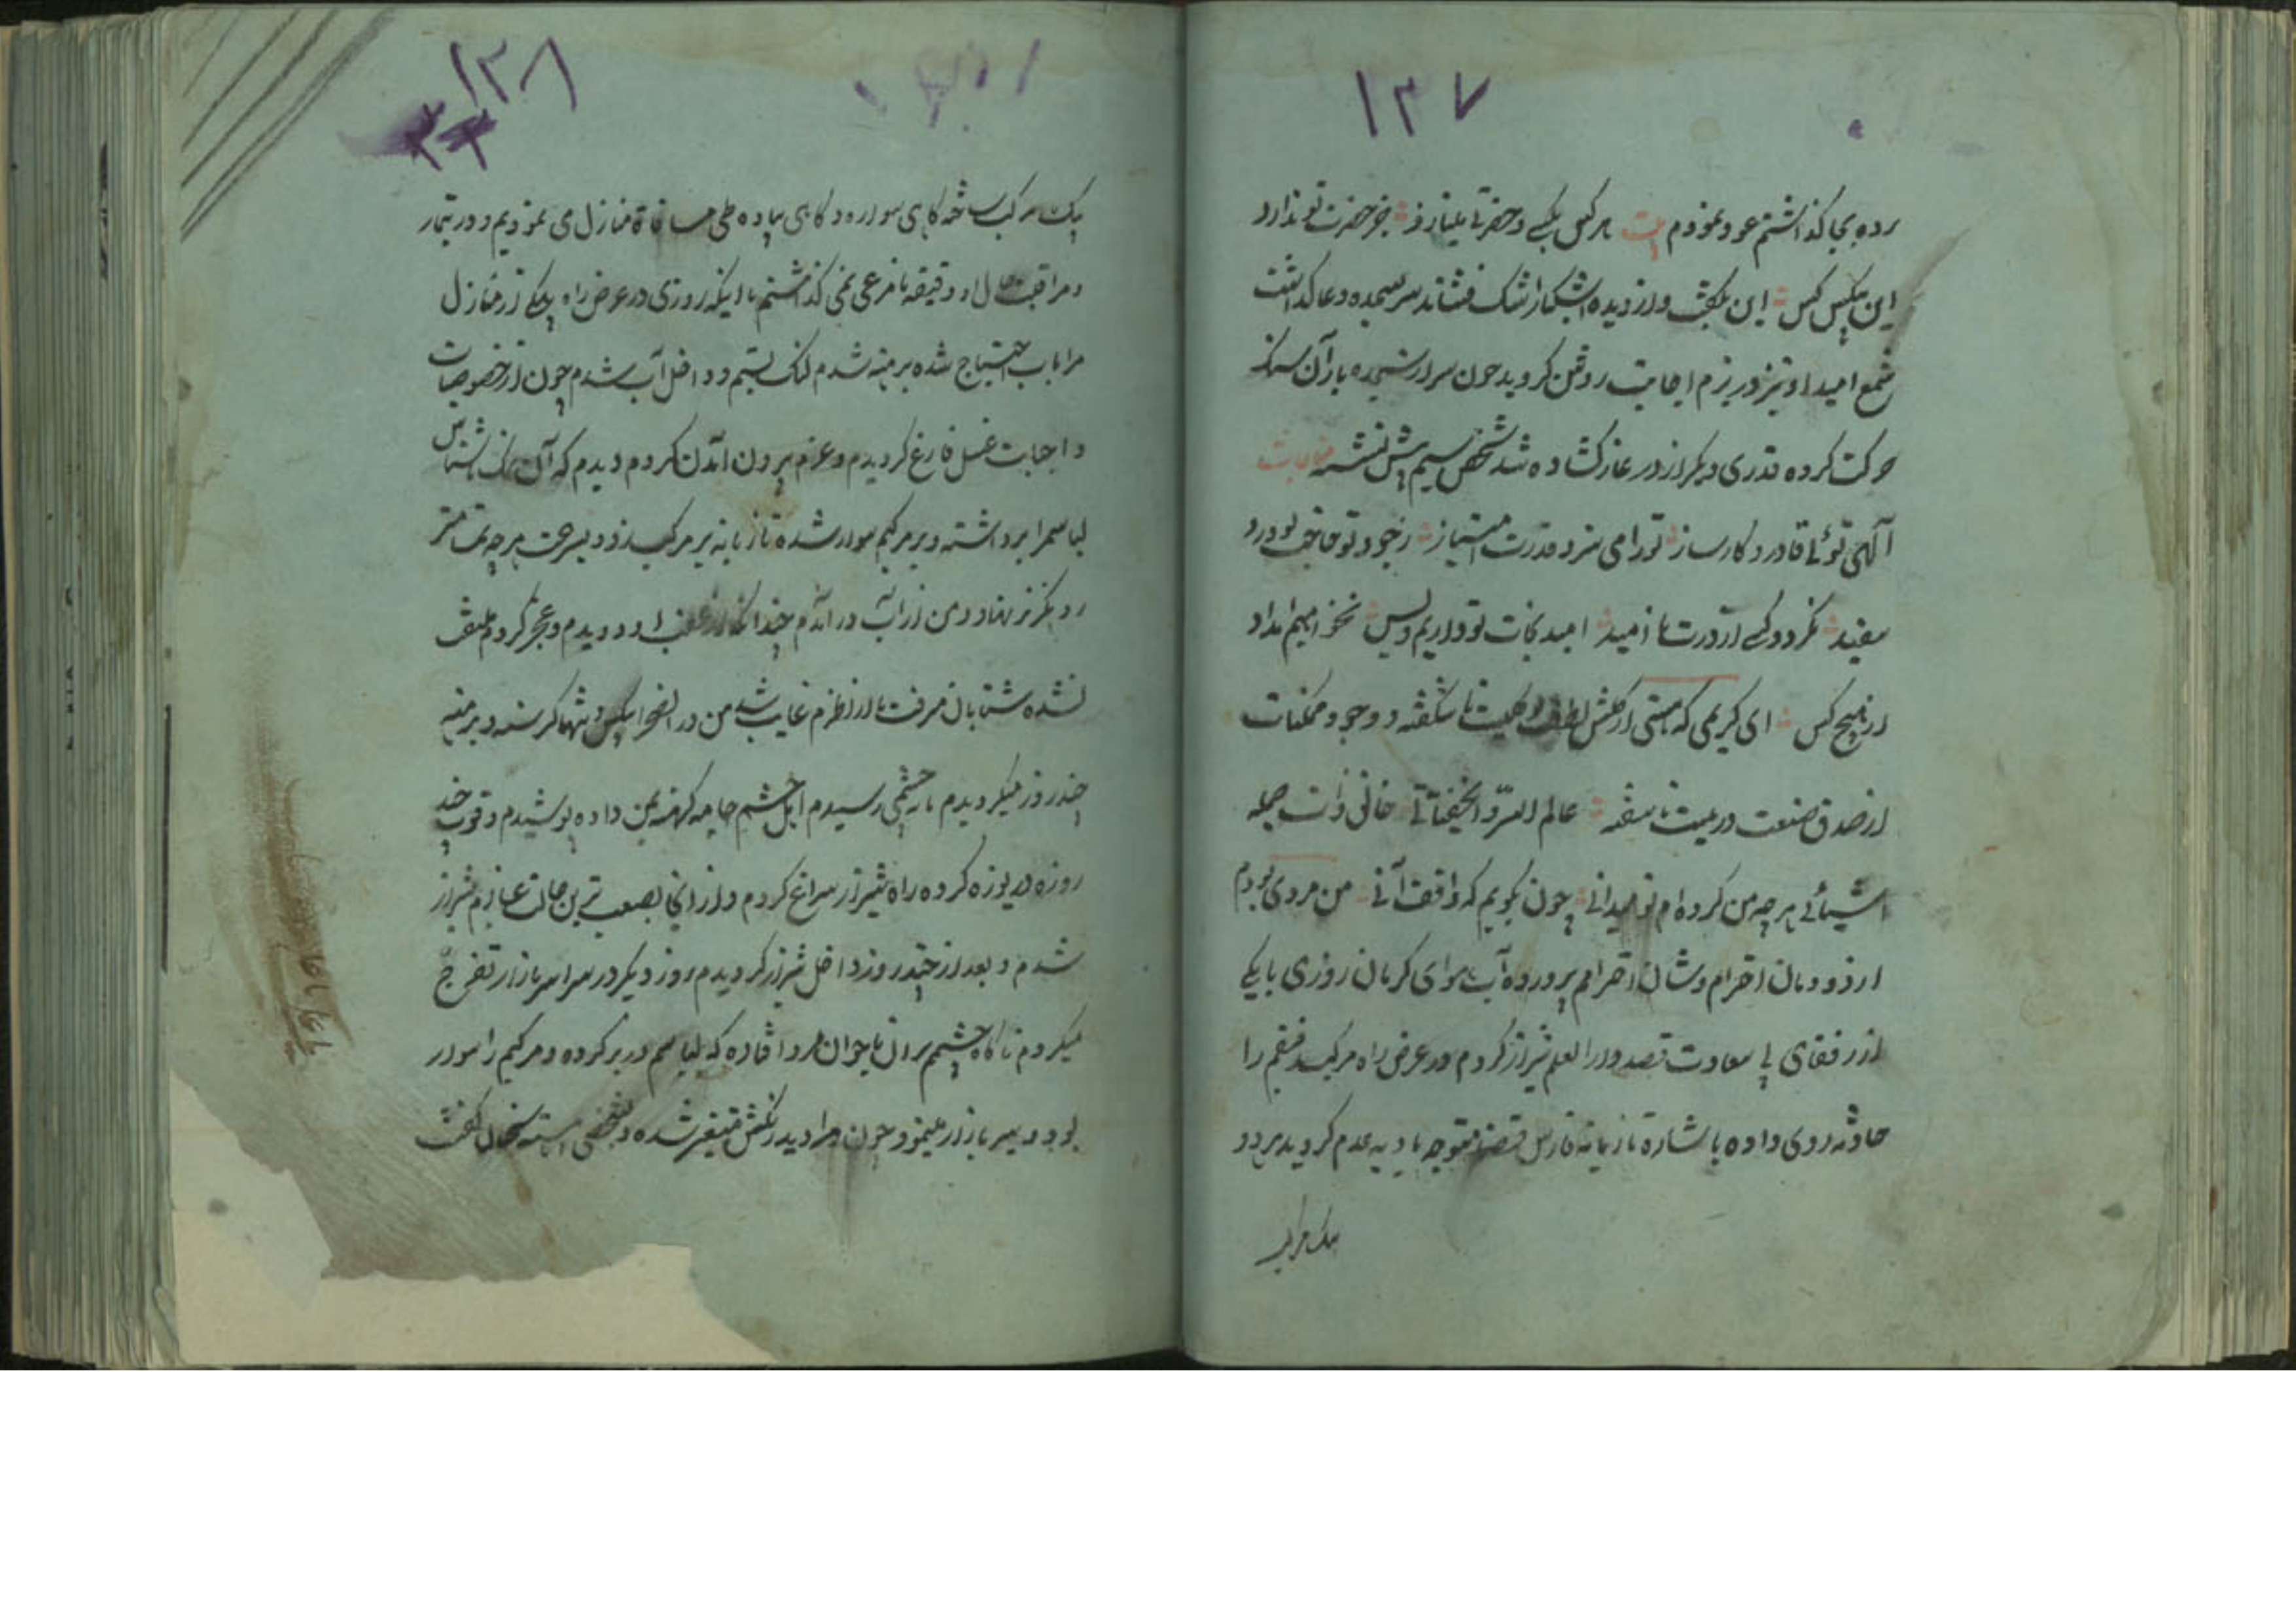 ۱۳۷
رده بجا گذاشتم عود نمودم بیت هر کس بکسی و حضرتی مینازد جز حضرت تو ندارد
این بیکس کس این بگفت و از دیده اشکبار اشک فشاند سر بسجده دعا گذاشت
شمع امید او نیز در بزم اجابت روشن گردید چون سر از سجده باز آن سنک
حرکت کرده قدری دیگر از در غار گشاده شد شخص سیم پیش نشسته مناجات
آلهی توئی قادر و کارساز تو را می سزد قدرت امتیاز
نگردد کسی از درت نا امید امید نجات تو داریم و بس نخواهیم امداد
از هیچ کس ای کریمی که هستی از گلشن لطف ناشگفته در وجود ممکنات
از صدف صنعت در نا سفته عالم السر و الخفیاتی خالق ذات جمله
اشیائی هر چه من کرده ام تو میدانی چون بگویم که واقف آنی من مردی بودم
از دودمان احترام پرورده آب و هوای کرمان روزی با یکی
از رفقای با سعادت قصد دار العلم شیراز کردم در عرض راه مرکب رفیقم را
حادثه روی داده با شاره تازیانه فارس قضا متوجه بادیه عدم گردید هر دو
یک مرکب
۱۳۸
یک مرکب ساخته گاهی سواره و گاهی پیاده طی مسافة منازل می نمودیم و در تیمار
و مراقبت حال او دقیقه نامرعی نمی گذاشتم تا اینکه روزی در عرض راه بیکی از منازل
مرا بآب احتیاج شده برهنه شدم لنک بستم و داخل آب شدم چون از خصوصیات
واجبات غسل فارغ گردیدم و عزم بیرون آمدن کردم دیدم که آن
لباسم را برداشته و بر مرکبم سوار شده تازیانه بر مرکب زد و بسرعت هر چه تمامتر
رو بگریز نهاد و من از آب در آمدم چندانکه از عقب او دویدم و عجز کردم ملتفت
نشده شتابان میرفت تا از نظرم غایب شد من در آنصحرا بیکس و تنها گرسنه و برهنه
چند روز میگردیدم تا بحشمی رسیدم اهل حشم جامه کهنه بمن داده پوشیدم و قوت چند
روزه دریوزه کرده راه شیراز سراغ کردم و از آنجا بصعب ترین حالت عازم شیراز
شدم و بعد از چند روز داخل شیراز گردیدم روز دیگر در سراسر بازار تفرج
میکردم ناگاه چشمم بر آن ناجوانمرد افتاده که لباسم در بر کرده و مرکبم را سوار
بود و سیر بازار مینمود چون مرا دید رنگش متغیر شده و بشخصی آهسته سخنان گفت